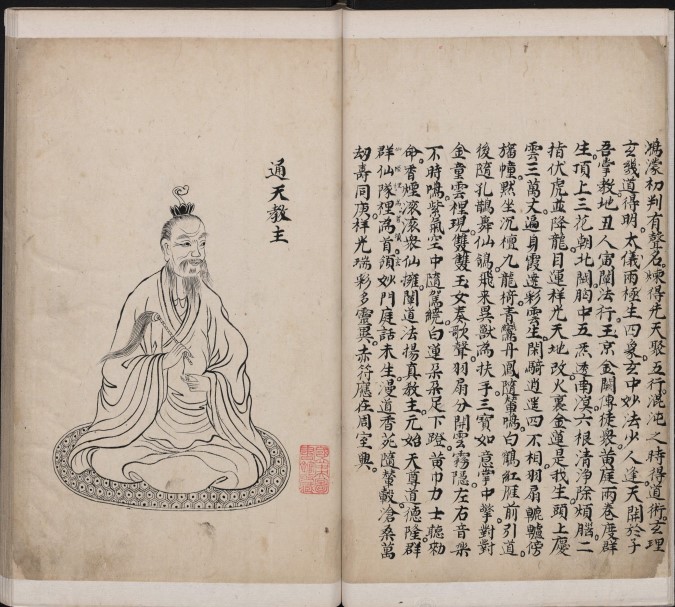 鴻濛初判有聲名。煉得先天聚五行。混沌之時得道術。玄理
玄幾道得明。太儀兩極生四象。玄中妙法少人逢天開於子
吾掌教地丑人寅闡法行。玉京金闕傳徒衆。黃庭兩卷度群
生。頂上三花朝北闕。胸中五炁透南溟。六根清淨除煩腦。二
指伏虎並降龍。目運祥光天地改。火裏金蓮是我生。頭上慶
雲三萬丈。遍身霞遶彩雲生。閑騎逍遥四不相。羽扇轆轤傍
旛幢默坐沉檀九龍椅。青鸞丹鳳隨鑾鳴。白鶴紅雁前引道
後隨孔鵲舞仙鶴。飛來異獸為扶手。三寶如意掌中擎。對對
金童雲裡現。雙雙玉女奏歌聲。羽扇分開雲霧隱。左右音樂
不時鳴。紫氣空中隨駕繞。白蓮朵朵足下蹬。黃巾力士聽勅
命。香煙滾滾衆仙擁。闡道法揚真教主。元始天尊道德隆。群
群仙隊裡為首領妙門庭話未生。漫道香花隨輦轂。滄桑萬
劫壽同庚。祥光瑞彩多靈異。赤符應在周室興。
通天教主